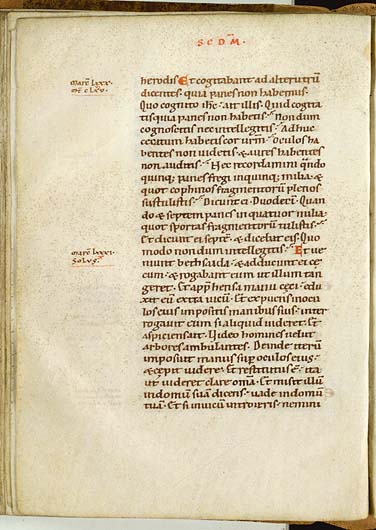 SCDM
MARC LXXX.
MT CLXV.
herodis Et cogitabant ad alterutrū
dicentes. quia panes non habemus.
Quo cognito ihc. ait illis. Quid cogita
tis. quia panes non habetis. Nondum
cognoscetis nec intellegitis. Adhuc
cecitum habetis cor vrm. Oculos ha
bentes non videtis. & aures habentes
non auditis. Nec recordamini qndo
quinq; panes fregi in quinq; milia. &
quot cophinos fragmentorū plenos
sustulistis. Dicunt ei. Duodeci. Quan
do & septem panes in quatuor milia.
quot sportas fragmentorū tulistis.
Et dicunt ei. septē. & dicebat eis. Quo
modo nondum intellegitis. Et ve
MARC LXXXI
SOLVS.
niunt bethsaida. & adducunt ei ce
cum. & rogabant eum ut illum tan
geret. Et apphensa manu ceci. edu
xit eū extra vicū. Et expuens in ocu
los eius impositis manibus suis. inter
rogavit eum si aliquid videret. Et
aspiciens ait. Video homines velut
arbores ambulantes. Deinde iterū
imposuit manus sup oculos eius.
& cepit videre. Et restitutus ē. ita
ut videret clare omā. Et misit illū
in domū suā dicens. vade in domū
tuā. Et si in vicū introieris. nemini